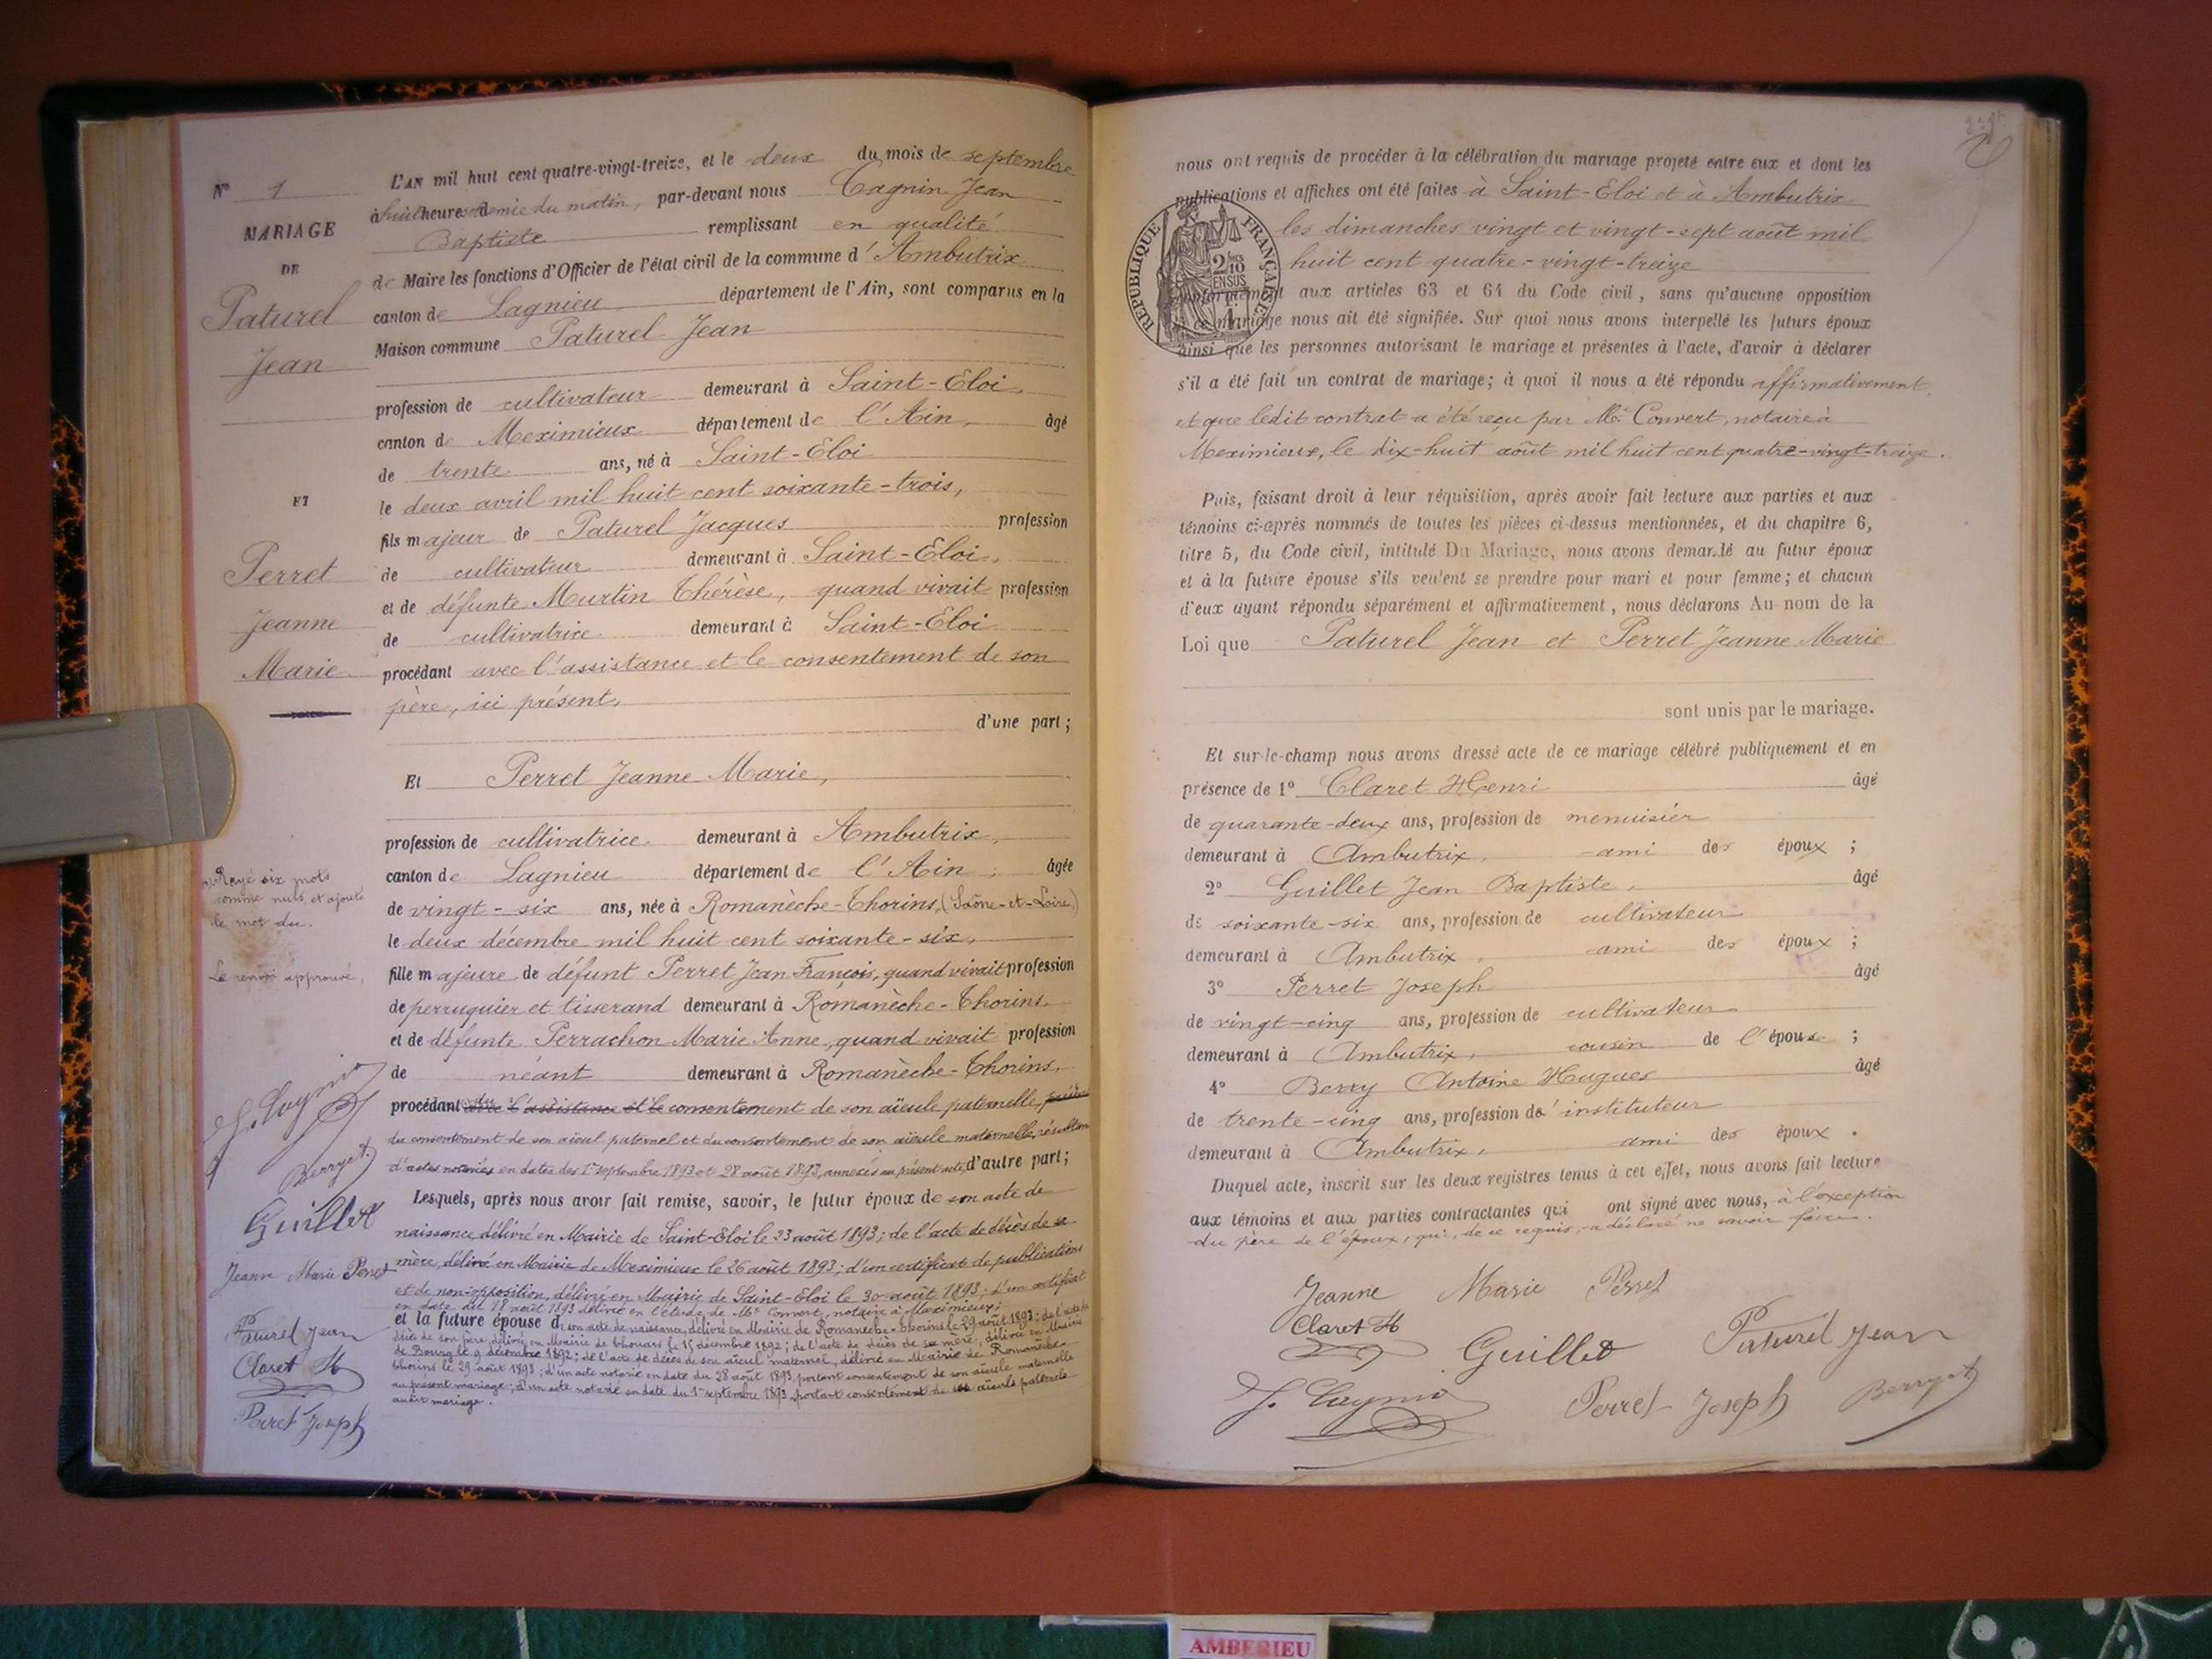 N° 1
MARIAGE
DE
Paturel
Jean
ET
Perret
Jeanne
Marie
Rayé six mots
comme nuls et ajouté
le mot du.
Le renvoi approuvé.
Berryat
Guillet
Jeanne Marie Perret
Paturel Jean
Claret H
Perret Joseph
L'AN mil huit cent quatre-vingt-treize, et le deux du mois de septembre
à huit heures et demie du matin, par-devant nous Cagnin Jean
Baptiste remplissant en qualité
de Maire les fonctions d'Officier de l'état civil de la commune d'Ambutrix
canton de Lagnieu département de l'Ain, sont comparus en la
Maison commune Paturel Jean
profession de cultivateur demeurant à Saint-Eloi,
canton de Meximieux département de l'Ain, âgé
de trente ans, né à Saint-Eloi
le deux avril mil huit cent soixante-trois,
fils majeur de Paturel Jacques profession
de cultivateur demeurant à Saint-Eloi,
et de défunte Murtin Thérèse, quand vivait profession
de cultivatrice demeurant à Saint-Eloi
procédant avec l'assistance et le consentement de son
père, ici présent,
d'une part;
Et Perret Jeanne Marie,
profession de cultivatrice demeurant à Ambutrix,
canton de Lagnieu département de l'Ain, âgée
de vingt-six ans, née à Romanèche-Thorins, (Saône-et-Loire)
le deux décembre mil huit cent soixante-six,
fille majeure de défunt Perret Jean François, quand vivait profession
de perruquier et tisserand demeurant à Romanèche-Thorins
et de défunte Perrachon Marie Anne, quand vivait profession
de néant demeurant à Romanèche-Thorins,
procédant du avec l'assistance et le consentement de son aïeule paternelle,
du consentement de son aïeul paternel et du consentement de son aïeule maternelle, résultant
d'actes notariés en dates des 1er septembre 1893 et 28 août 1893, annexés au présent acte, d'autre part;
Lesquels, après nous avoir fait remise, savoir, le futur époux de son acte de
naissance délivré en Mairie de Saint-Eloi le 23 août 1893; de l'acte de décès de sa
mère, délivré en Mairie de Meximieux le 26 août 1893; d'un certificat de publications
et de non-opposition, délivré en Mairie de Saint-Eloi le 30 août 1893; d'un certificat
en date du 18 août 1893 délivré en l'étude de Me Convert, notaire à Meximieux;
et la future épouse de son acte de naissance, délivré en Mairie de Romanèche-Thorins le 29 août 1893; de l'acte de
décès de son père, délivré en Mairie de Thouars le 15 décembre 1892; de l'acte de décès de sa mère, délivré en Mairie
de Bourg le 9 décembre 1892; de l'acte de décès de son aïeul maternel, délivré en Mairie de Romanèche-
Thorins le 29 août 1893; d'un acte notarié en date du 28 août 1893, portant consentement de son aïeule maternelle
au présent mariage; d'un acte notarié en date du 1er septembre 1893, portant consentement de ses aïeuls paternels
audit mariage.
nous ont requis de procéder à la célébration du mariage projeté entre eux et dont les
publications et affiches ont été faites à Saint-Eloi et à Ambutrix
les dimanches vingt et vingt-sept août mil
huit cent quatre-vingt-treize
RÉPUBLIQUE FRANÇAISE
2/10 EN SUS
conformément aux articles 63 et 64 du Code civil, sans qu'aucune opposition
à ce mariage nous ait été signifiée. Sur quoi nous avons interpellé les futurs époux
ainsi que les personnes autorisant le mariage et présentes à l'acte, d'avoir à déclarer
s'il a été fait un contrat de mariage; à quoi il nous a été répondu affirmativement,
et que ledit contrat a été reçu par Me Convert, notaire à
Meximieux, le dix-huit août mil huit cent quatre-vingt-treize.
Puis, faisant droit à leur réquisition, après avoir fait lecture aux parties et aux
témoins ci-après nommés de toutes les pièces ci-dessus mentionnées, et du chapitre 6,
titre 5, du Code civil, intitulé Du Mariage, nous avons demandé au futur époux
et à la future épouse s'ils veulent se prendre pour mari et pour femme; et chacun
d'eux ayant répondu séparément et affirmativement, nous déclarons Au nom de la
Loi que Paturel Jean et Perret Jeanne Marie
sont unis par le mariage.
Et sur-le-champ nous avons dressé acte de ce mariage célébré publiquement et en
présence de 1° Claret Henri âgé
de quarante-deux ans, profession de menuisier
demeurant à Ambutrix, ami des époux;
2° Guillet Jean Baptiste, âgé
de soixante-six ans, profession de cultivateur
demeurant à Ambutrix, ami des époux;
3° Perret Joseph âgé
de vingt-cinq ans, profession de cultivateur
demeurant à Ambutrix, cousin de l'épouse;
4° Berry Antoine Hugues âgé
de trente-cinq ans, profession d'instituteur
demeurant à Ambutrix, ami des époux.
Duquel acte, inscrit sur les deux registres tenus à cet effet, nous avons fait lecture
aux témoins et aux parties contractantes qui ont signé avec nous, à l'exception
du père de l'époux, qui, de ce requis, a déclaré ne savoir faire.
Jeanne Marie Perret
Claret H
Guillet Paturel Jean
J. Cagnin Perret Joseph Berryat
AMBERIEU